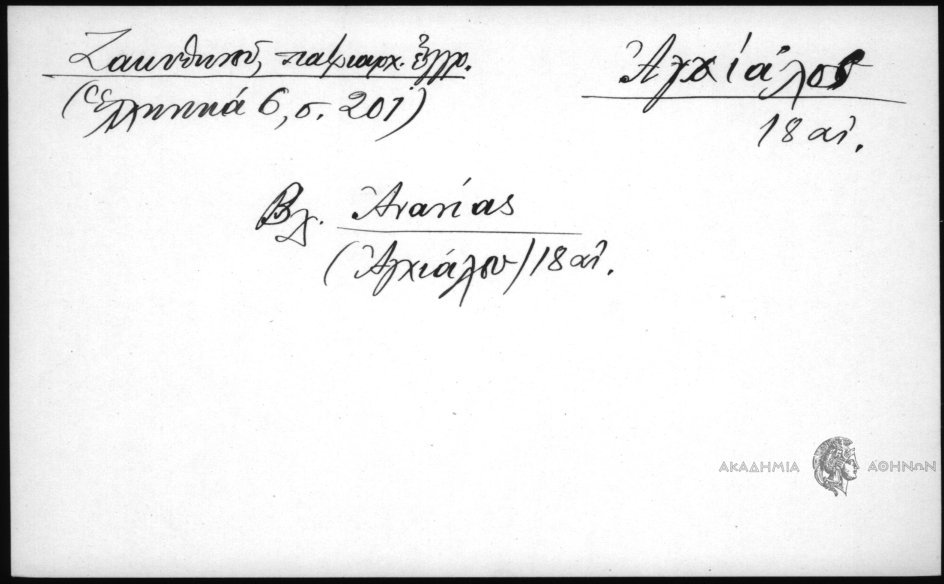 Ζακυθηνοῦ, πατριαρχ. ἔγγρ.
(Ἑλληνικά 6, σ. 201)
Ἀγχίαλος
18 αἰ.
Βλ. Ἀνανίας
(Ἀγχιάλου) 18 αἰ.
ΑΚΑΔΗΜΙΑ ΑΘΗΝΩΝ